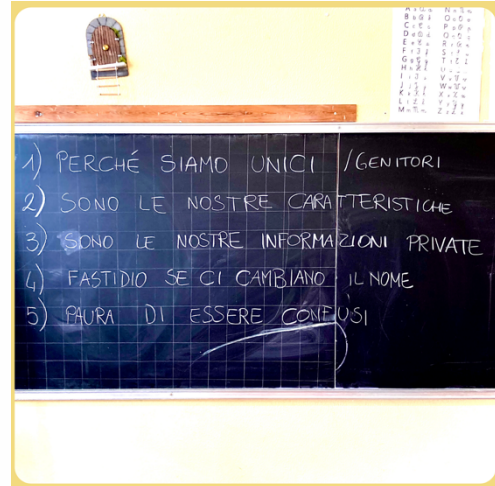 1) PERCHÉ SIAMO UNICI /GENITORI
2) SONO LE NOSTRE CARATTERISTICHE
3) SONO LE NOSTRE INFORMAZIONI PRIVATE
4) FASTIDIO SE CI CAMBIANO IL NOME
5) PAURA DI ESSERE CONFUSI